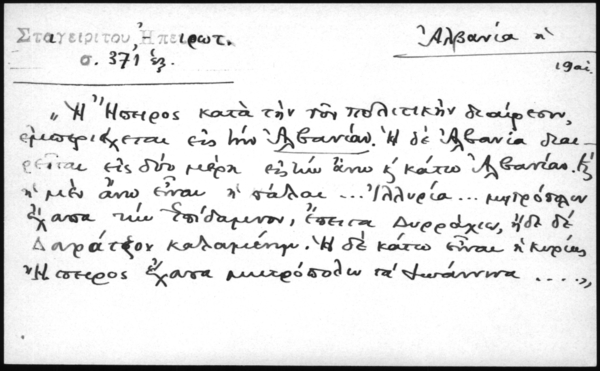 Σταγειρίτου, Ἠπειρωτ.
σ. 371 ἑξ.
Ἀλβανία ἡ
19 αἰ.
„Ἡ Ἤπειρος κατὰ τὴν νῦν πολιτικὴν διαίρεσιν,
ἐμπεριέχεται εἰς τὴν Ἀλβανίαν. Ἡ δὲ Ἀλβανία διαι-
ρεῖται εἰς δύο μέρη εἰς τὴν ἄνω κ κάτω Ἀλβανίαν. Κ
ἡ μὲν ἄνω εἶναι ἡ πάλαι ... Ἰλλυρία ... μητρόπολιν
ἔχουσα τὴν Ἐπίδαμνον, ἔπειτα Δυρράχιον, ἤδη δὲ
Δαράτζον καλουμένην. Ἡ δὲ κάτω εἶναι ἡ κυρίως
Ἤπειρος ἔχουσα μητρόπολιν τὰ Ἰωάννινα ....„